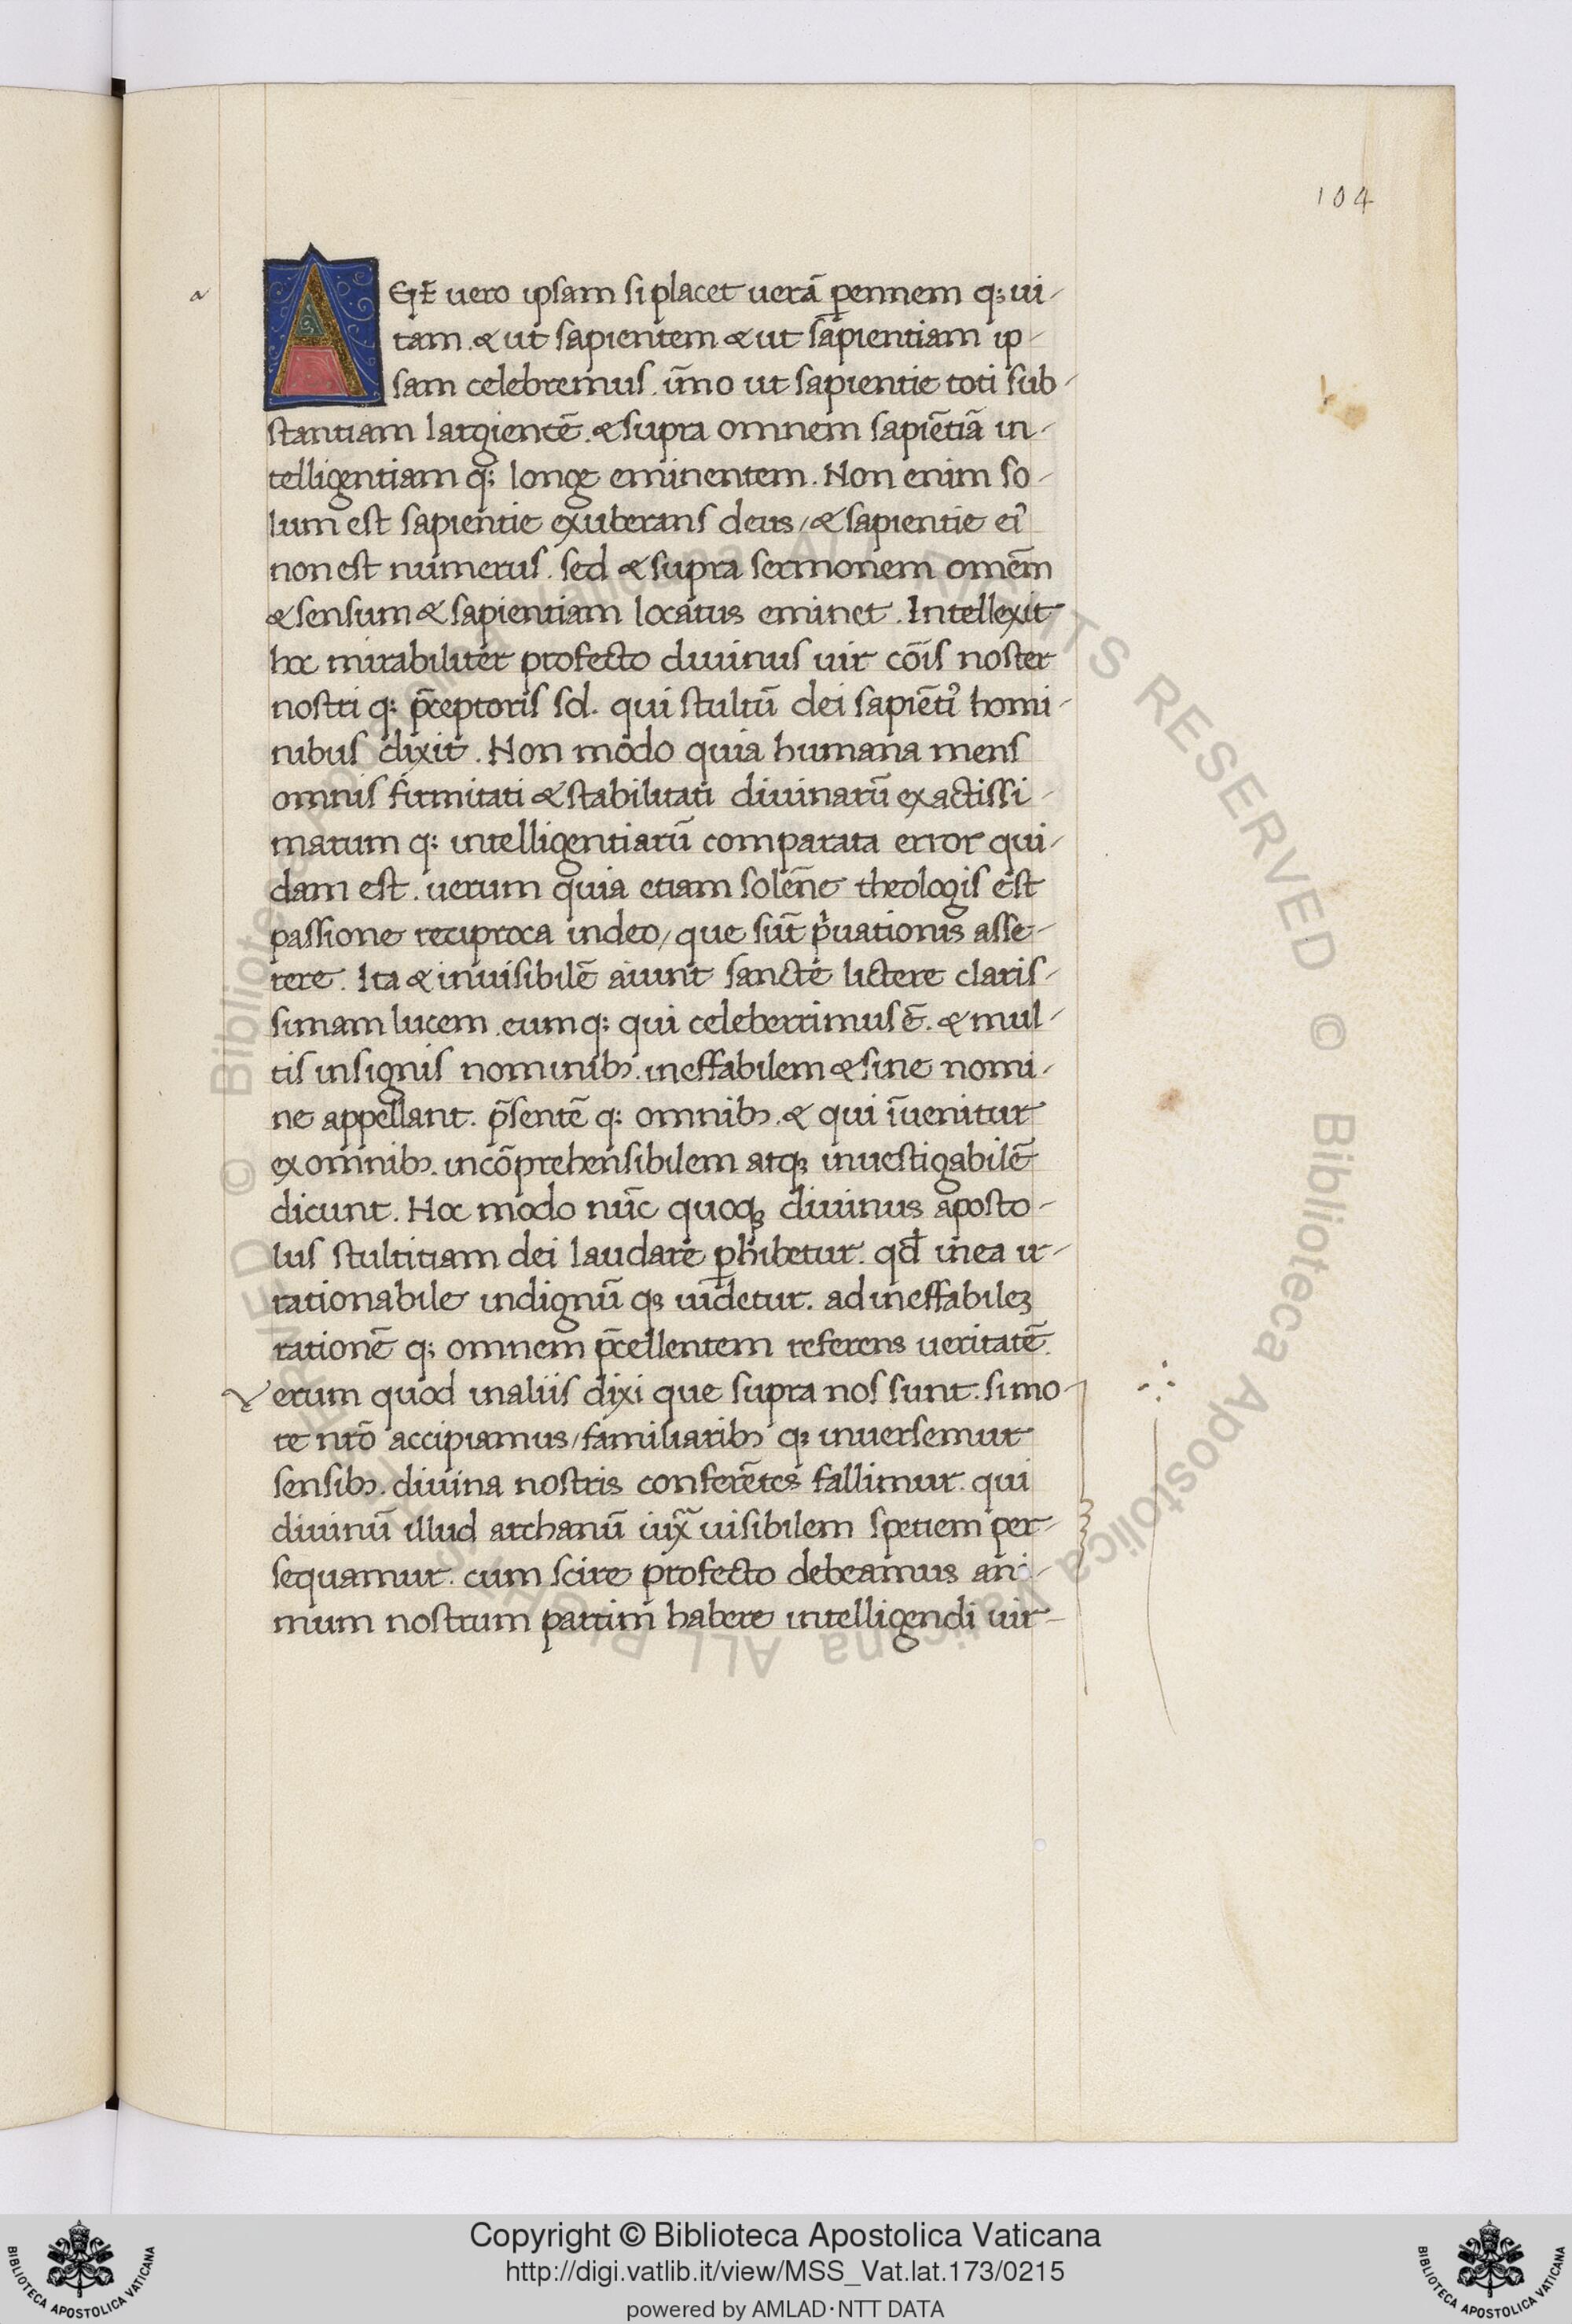 104
AGE vero ipsam si placet uerā ꝑennem q; ui-
tam. & ut sapientem & ut sapientiam ip-
sam celebremus. īmo ut sapientie toti sub-
stantiam largientē. & supra omnem sapiētiā in-
telligentiam q; longe eminentem. Non enim so-
lum est sapientie exuberans deus, & sapientie ei᾽
non est numerus. sed & supra sermonem omēm
& sensum & sapientiam locatus eminet. Intellexit
hoc mirabiliter profecto diuinus uir cōīs noster
nostri q; p̄ceptoris sol. qui stultū dei sapiēti᾽ homi-
nibus dixit. Non modo quia humana mens
omnis firmitati & stabilitati diuinarū exactissi-
marum q; intelligentiarū comparata error qui-
dam est. uerum quia etiam solēne theologis est
passione reciproca in deo, que sūt pͥuationis asse-
rere. Ita & inuisibilē aiunt sancte lictere claris-
simam lucem. eum q; qui celeberrimus ē. & mul-
tis insignis nominibꝫ. ineffabilem & sine nomi-
ne appellant. p̄sentē q; omnibꝫ. & qui īuenitur
ex omnibꝫ. incōprehensibilem atqꝫ inuestigabilē
dicunt. Hoc modo nūc quoqꝫ diuinus aposto-
lus stultitiam dei laudare ꝑhibetur. qđ in ea ir-
rationabile indignū qꝫ uidetur. ad ineffabileꝫ
rationē q; omnem p̄cellentem referens ueritatē.
Verum quod in aliis dixi que supra nos sunt. si mo-
re nrō accipiamus, familiaribꝫ qꝫ inuersemur
sensibꝫ. diuina nostris conferētes fallimur. qui
diuinū illud archanū iuxᷓ uisibilem spetiem per-
sequamur. cum scire profecto debeamus ani-
mum nostrum partim habere intelligendi uir-
© Biblioteca Apostolica Vaticana ALL RIGHTS RESERVED
Copyright © Biblioteca Apostolica Vaticana
http://digi.vatlib.it/view/MSS_Vat.lat.173/0215
powered by AMLAD·NTT DATA
BIBLIOTECA APOSTOLICA VATICANA
BIBLIOTECA APOSTOLICA VATICANA